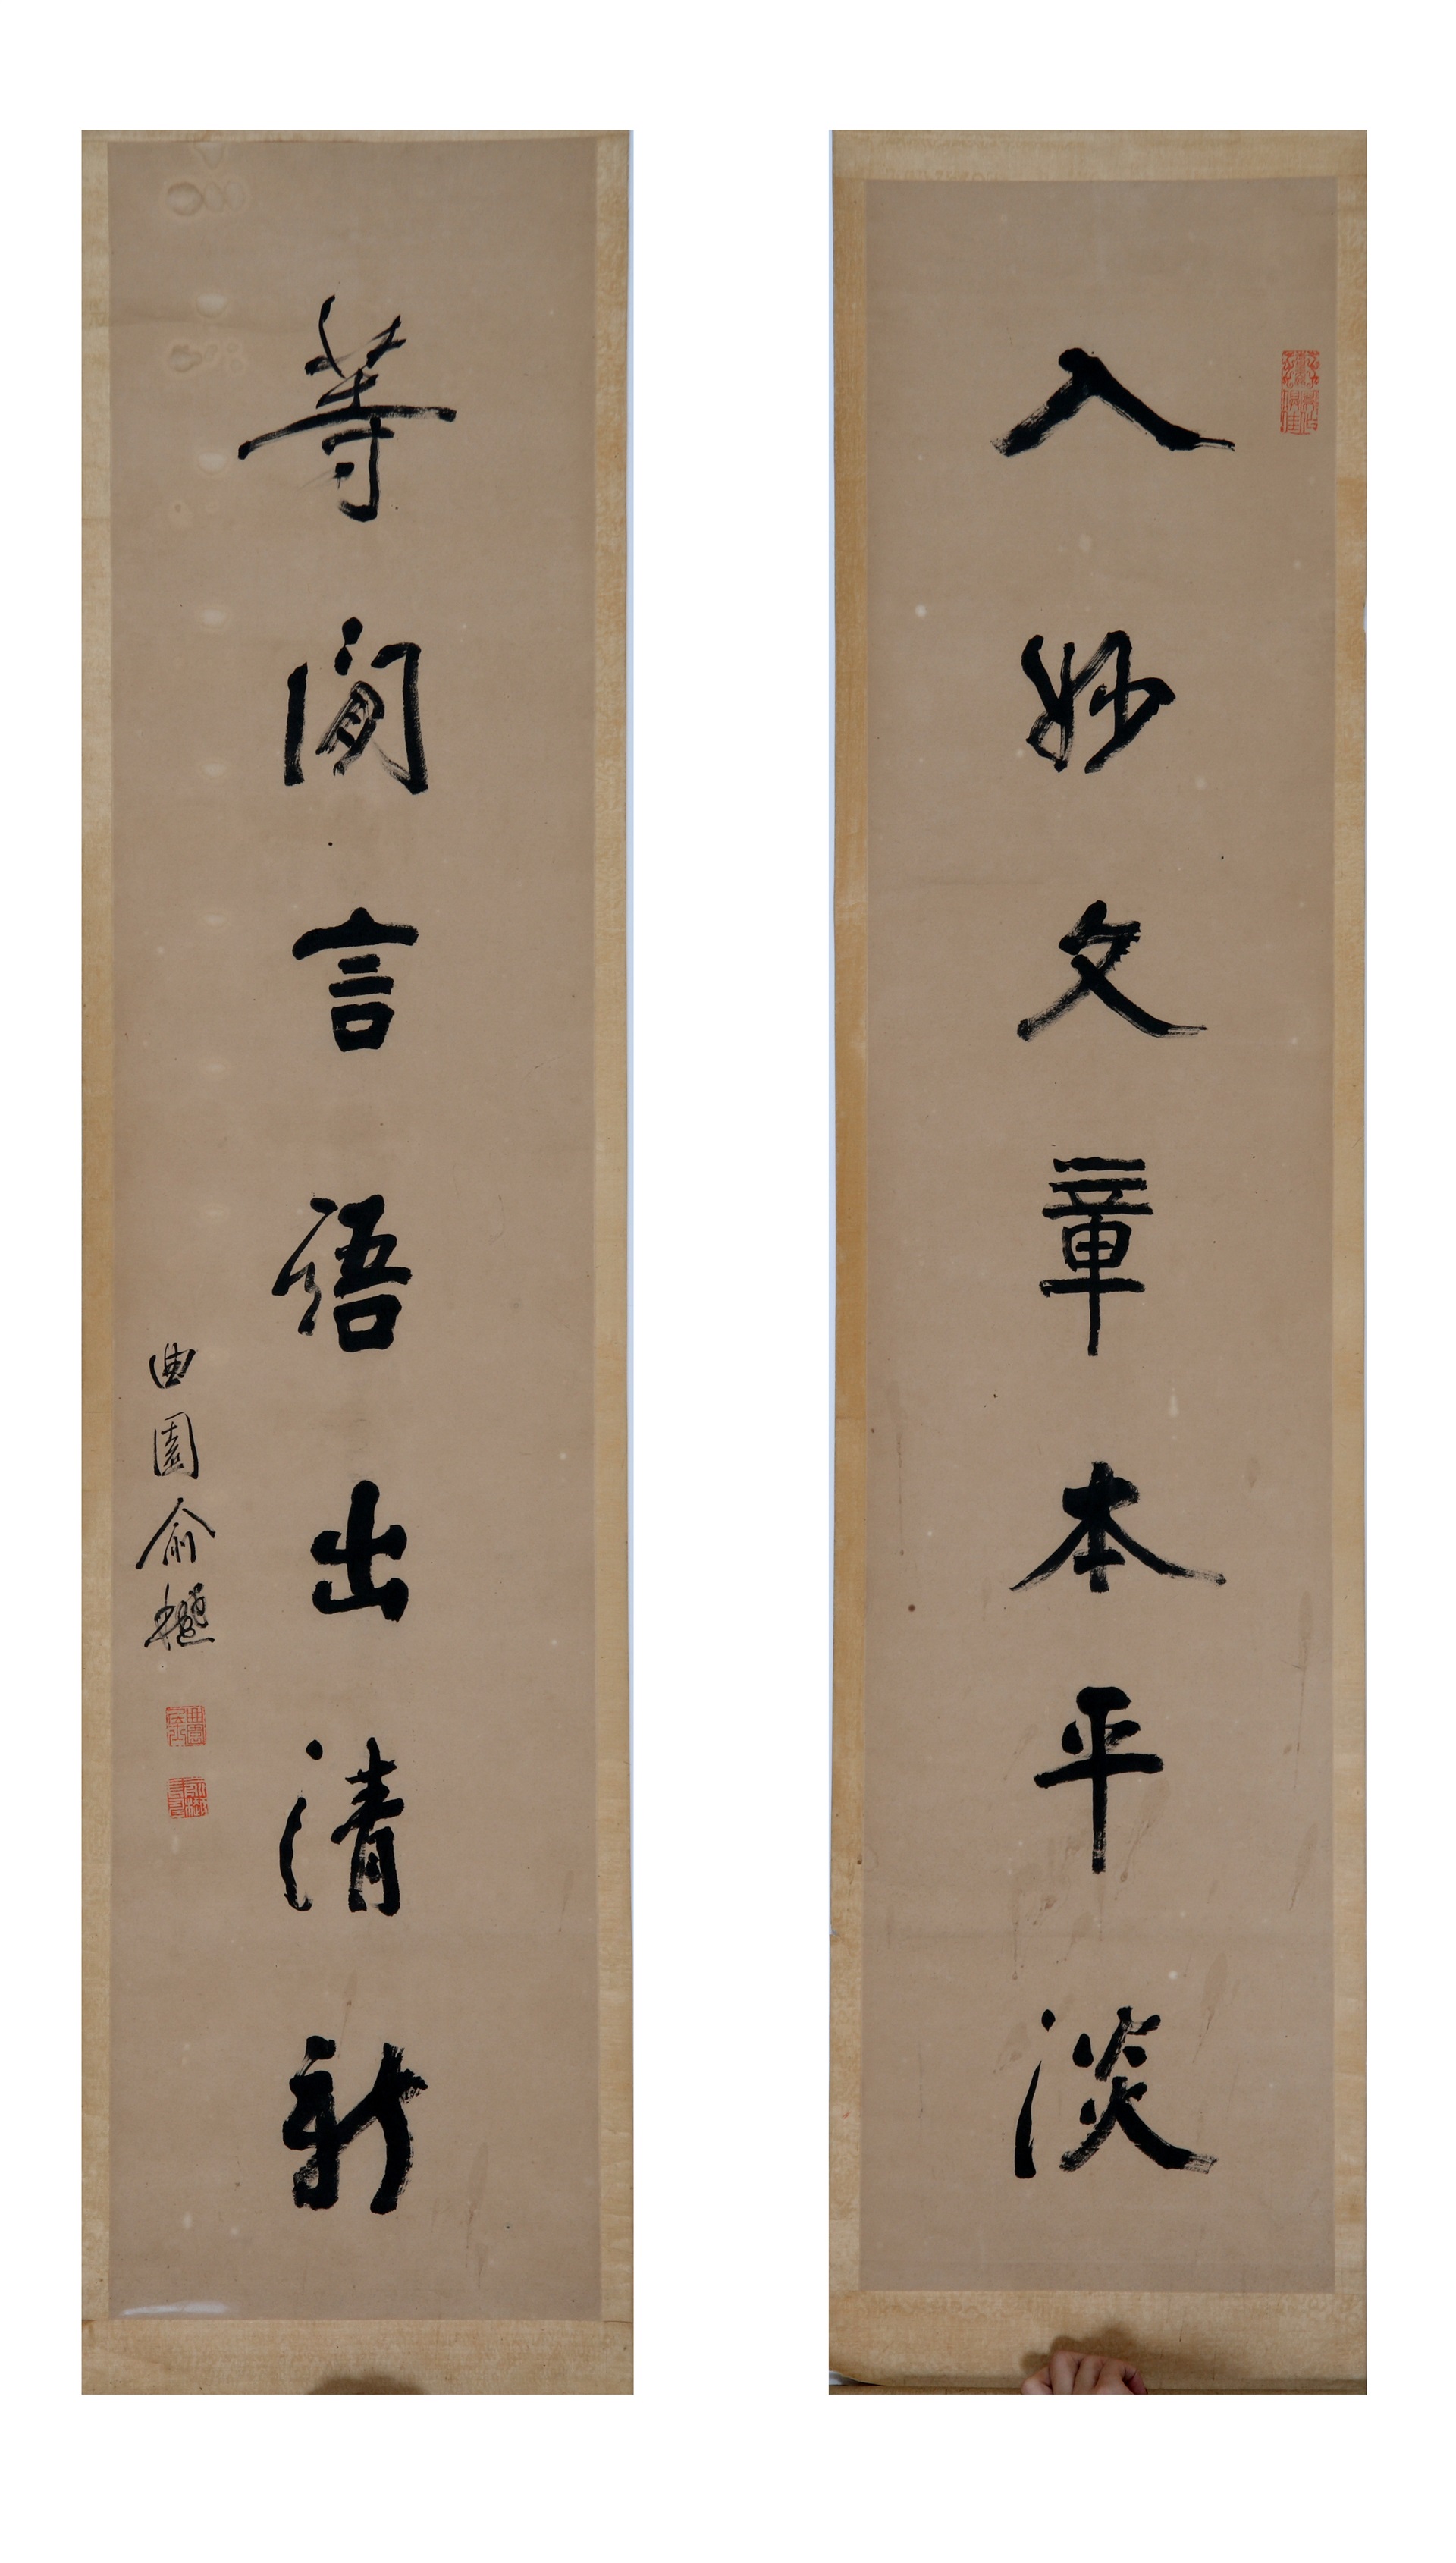 入妙文章本平淡
等閒言語出清新
曲園俞樾